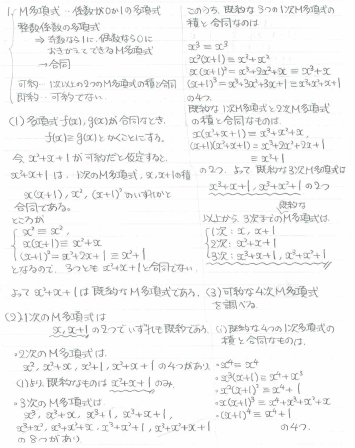 1, M多項式…係数が0か1の多項式
整数係数の多項式
⇒ 奇数なら1に、偶数なら0に
おきかえてできるM多項式
→合同
可約…1次以上の2つのM多項式の積と合同
既約…可約でない.
(1) 多項式f(x), g(x)が合同なとき、
f(x)≡g(x)とかくことにする。
今 x²+x+1 が可約だと仮定すると、
x²+x+1 は、1次のM多項式、x, x+1の積
x(x+1), x², (x+1)² のいずれかと
合同である。
ところが
x² ≡ x²,
x(x+1) ≡ x²+x
(x+1)² = x²+2x+1 ≡ x²+1
となるので、3つとも x²+x+1 と合同でない.
よって x²+x+1 は既約なM多項式である.
(2) 1次のM多項式は
x, x+1 の2つでいずれも既約である.
・2次のM多項式は
x², x²+x, x²+1, x²+x+1 の4つがあり
(1)より、既約なものは x²+x+1 のみ.
・3次のM多項式は
x³, x³+x, x³+1, x³+x+1,
x³+x², x³+x²+x, x³+x²+1, x³+x²+x+1
の8つがあり
このうち、既約な3つの1次M多項式の
積と合同なのは
x³ ≡ x³
x²(x+1) ≡ x³+x²
x(x+1)² = x³+2x²+x ≡ x³+x
(x+1)³ = x³+3x²+3x+1 ≡ x³+x²+x+1
の4つ.
既約な1次M多項式と2次M多項式
の積と合同なものは.
x(x²+x+1) ≡ x³+x²+x,
(x+1)(x²+x+1) = x³+2x²+2x+1
≡ x³+1
の2つ. よって既約な3次M多項式は
x³+x+1, x³+x²+1 の2つ
既約な
以上から、3次までのM多項式は.
1次: x, x+1
2次: x²+x+1
3次: x³+x+1, x³+x²+1
(3) 可約な4次M多項式
を調べる.
(i) 既約な4つの1次多項式の
積と合同なものは、
・x⁴ ≡ x⁴
・x³(x+1) ≡ x⁴+x³
・x²(x+1)² ≡ x⁴+x²
・x(x+1)³ ≡ x⁴+x³+x²+x
・(x+1)⁴ ≡ x⁴+1
の4つ.